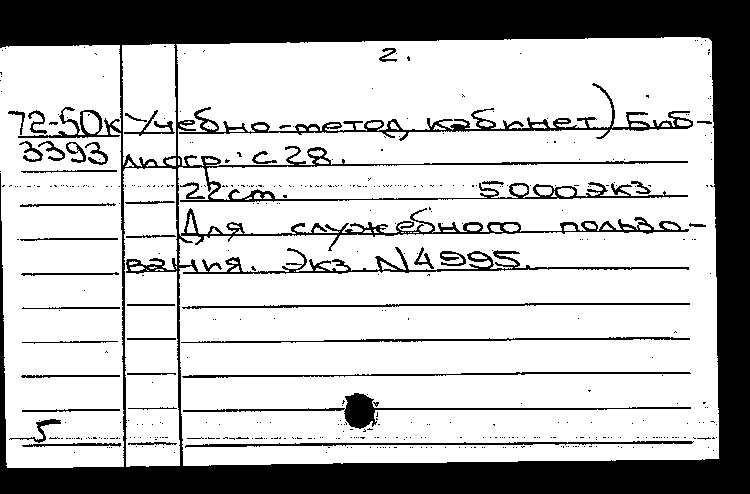 2.
72-50к Учебно-метод, кабинет) Биб-
3393 лиогр.: с. 28.
22 см. 5000 экз.
Для служебного пользо-
вания. Экз. N4995.
5